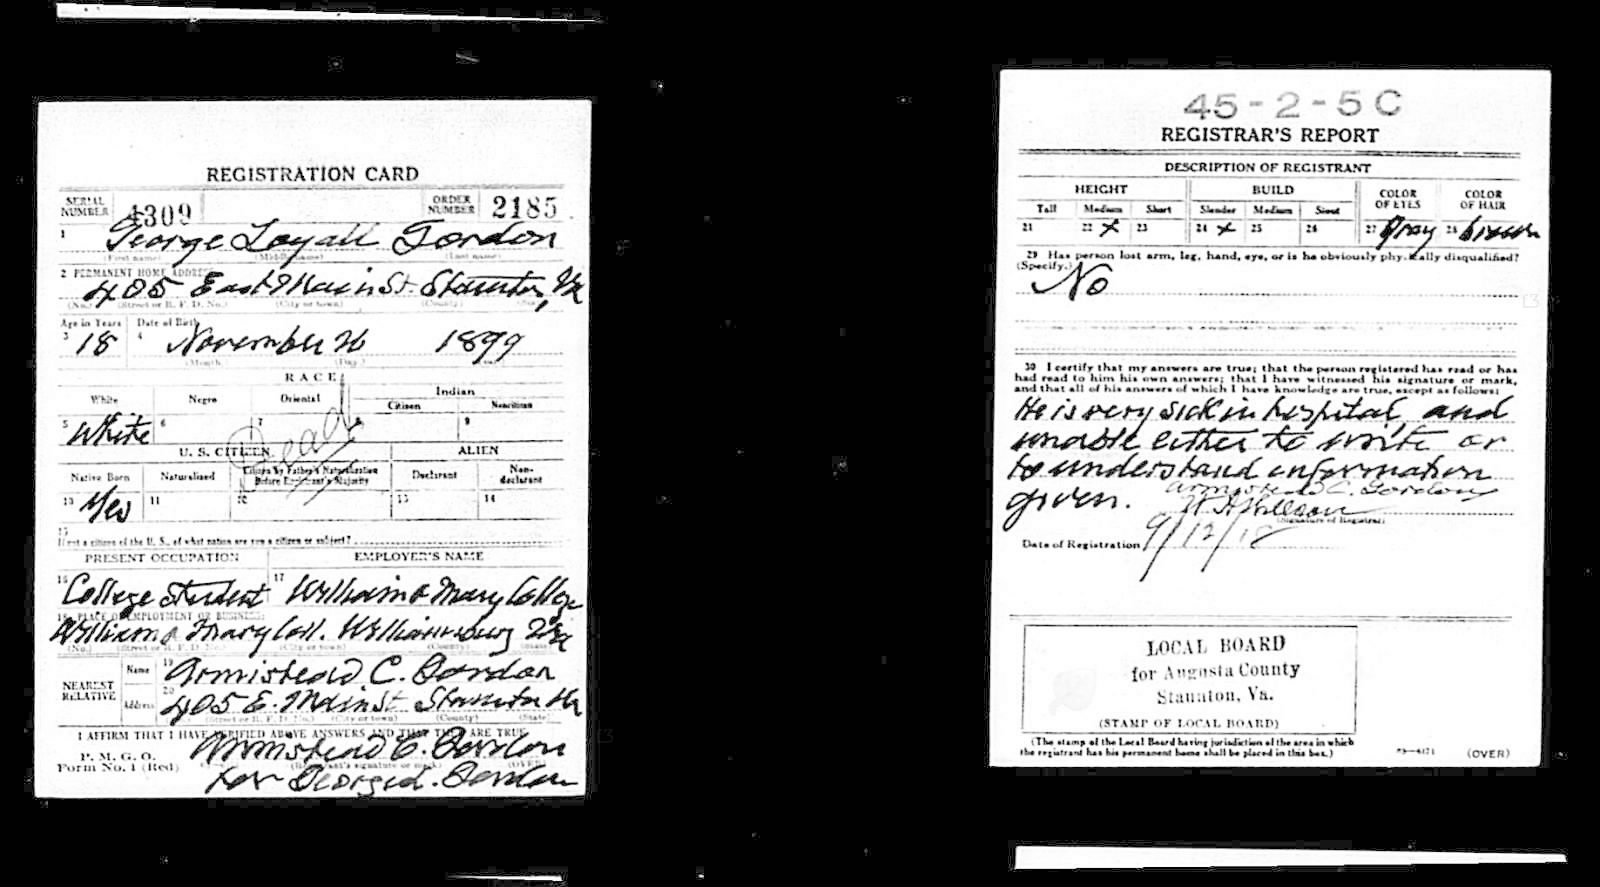 REGISTRATION CARD
SERIAL NUMBER 4309 ORDER NUMBER 2185
1 George Loyall Gordon
(First name) (Middle name) (Last name)
2 PERMANENT HOME ADDRESS
405 East Main St. Staunton, Va
(No.) (Street or R. F. D. No.) (City or town) (County) (State)
Age in Years Date of Birth
3 18 4 November 26 1899
(Month) (Day)
RACE
White Negro Oriental Indian
Citizen Noncitizen
5 White 6 7 8 9
Dead
U. S. CITIZEN ALIEN
Native Born Naturalized Citizen by Father's Naturalization Before Registrant's Majority Declarant Non-declarant
10 Yes 11 12 13 14
15
If not a citizen of the U. S., of what nation are you a citizen or subject?
PRESENT OCCUPATION EMPLOYER'S NAME
16 College Student 17 William & Mary College
18 PLACE OF EMPLOYMENT OR BUSINESS:
William & Mary Coll. Williamsburg Va
(No.) (Street or R. F. D. No.) (City or town) (County) (State)
NEAREST RELATIVE Name 19 Armistead C. Gordon
Address 20 405 E. Main St Staunton Va
(Street or R. F. D. No.) (City or town) (County) (State)
I AFFIRM THAT I HAVE VERIFIED ABOVE ANSWERS AND THAT THEY ARE TRUE
P. M. G. O.
Form No. 1 (Red) Armistead C. Gordon
(Registrant's signature or mark) (OVER)
for George L. Gordon
45-2-5 C
REGISTRAR'S REPORT
DESCRIPTION OF REGISTRANT
HEIGHT BUILD COLOR OF EYES COLOR OF HAIR
Tall Medium Short Slender Medium Stout
21 22 x 23 24 x 25 26 27 Gray 28 brown
29 Has person lost arm, leg, hand, eye, or is he obviously physically disqualified?
(Specify.) No
30 I certify that my answers are true; that the person registered has read or has
had read to him his own answers; that I have witnessed his signature or mark,
and that all of his answers of which I have knowledge are true, except as follows:
He is very sick in hospital, and
unable either to write or
to understand information
given. Armistead C. Gordon
(Signature of Registrar)
Date of Registration 9/12/18
LOCAL BOARD
for Augusta County
Staunton, Va.
(STAMP OF LOCAL BOARD)
(The stamp of the Local Board having jurisdiction of the area in which
the registrant has his permanent home shall be placed in this box.)
(OVER)